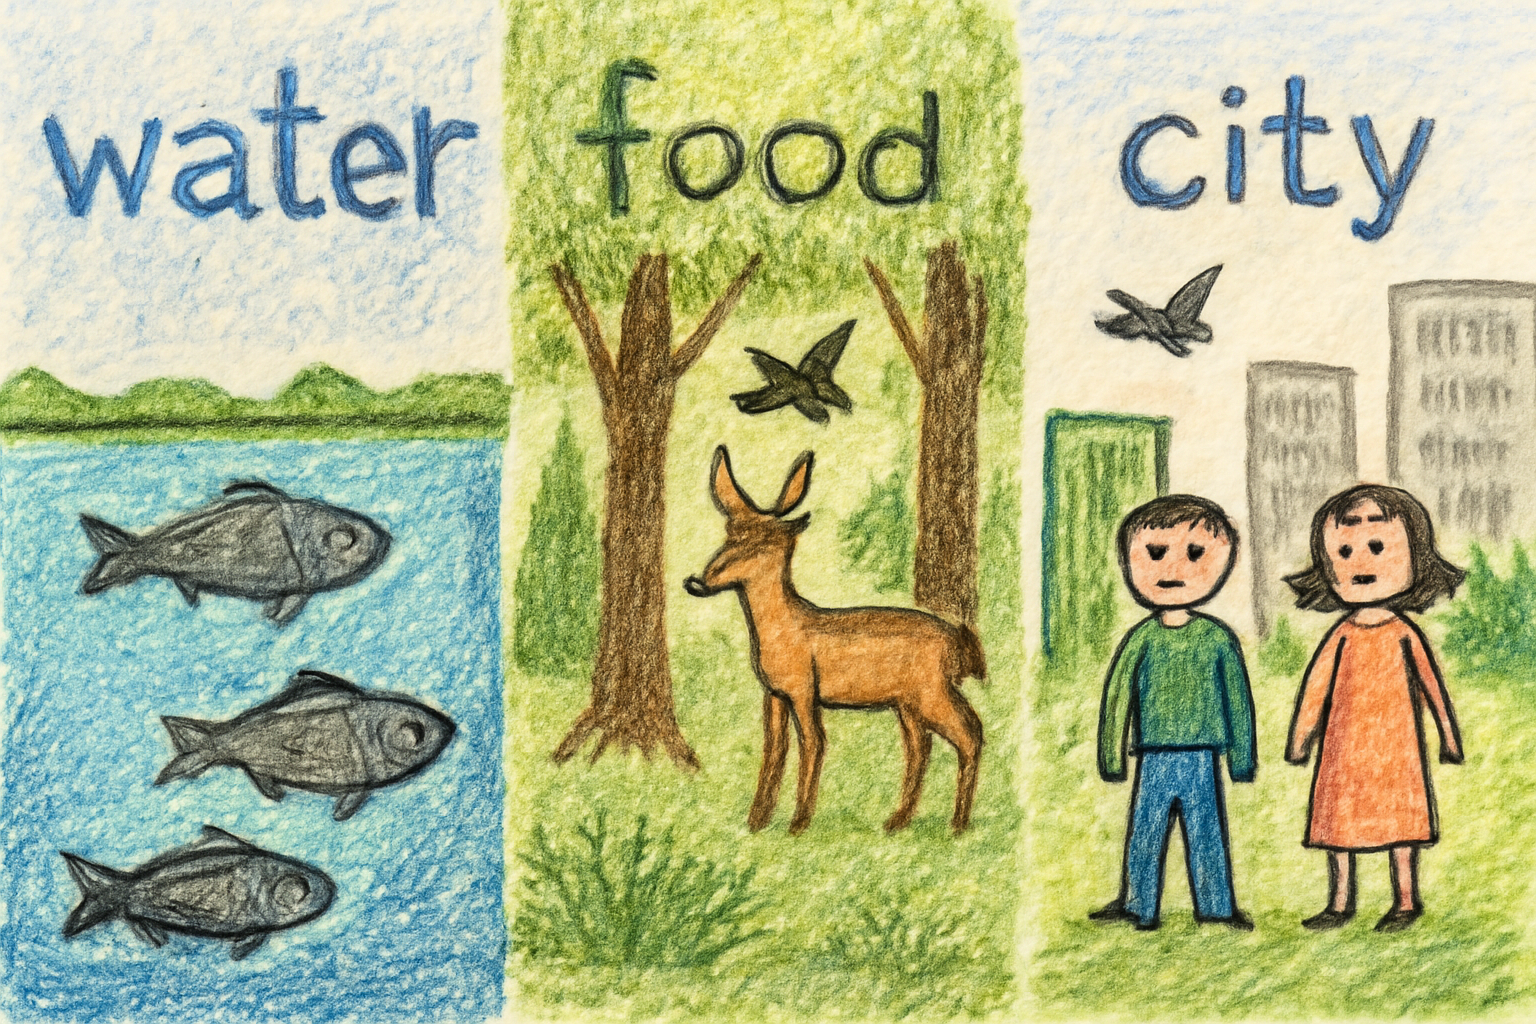 water food city